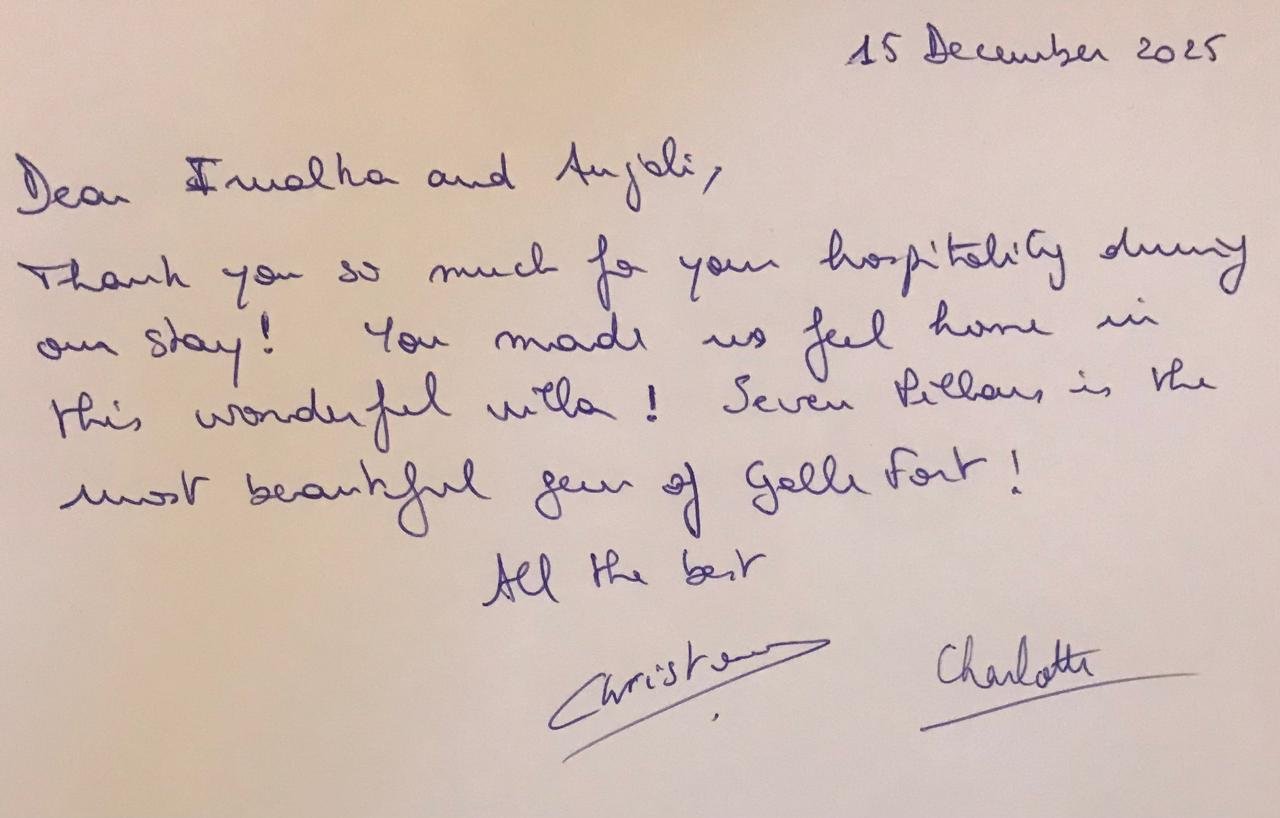 15 December 2025
Dear and Anjali,
Thank you so much for your hospitality during
our stay! You made us feel home in
this wonderful villa! Seven Pillars is the
most beautiful gem of Galle Fort!
All the best
Charlotte